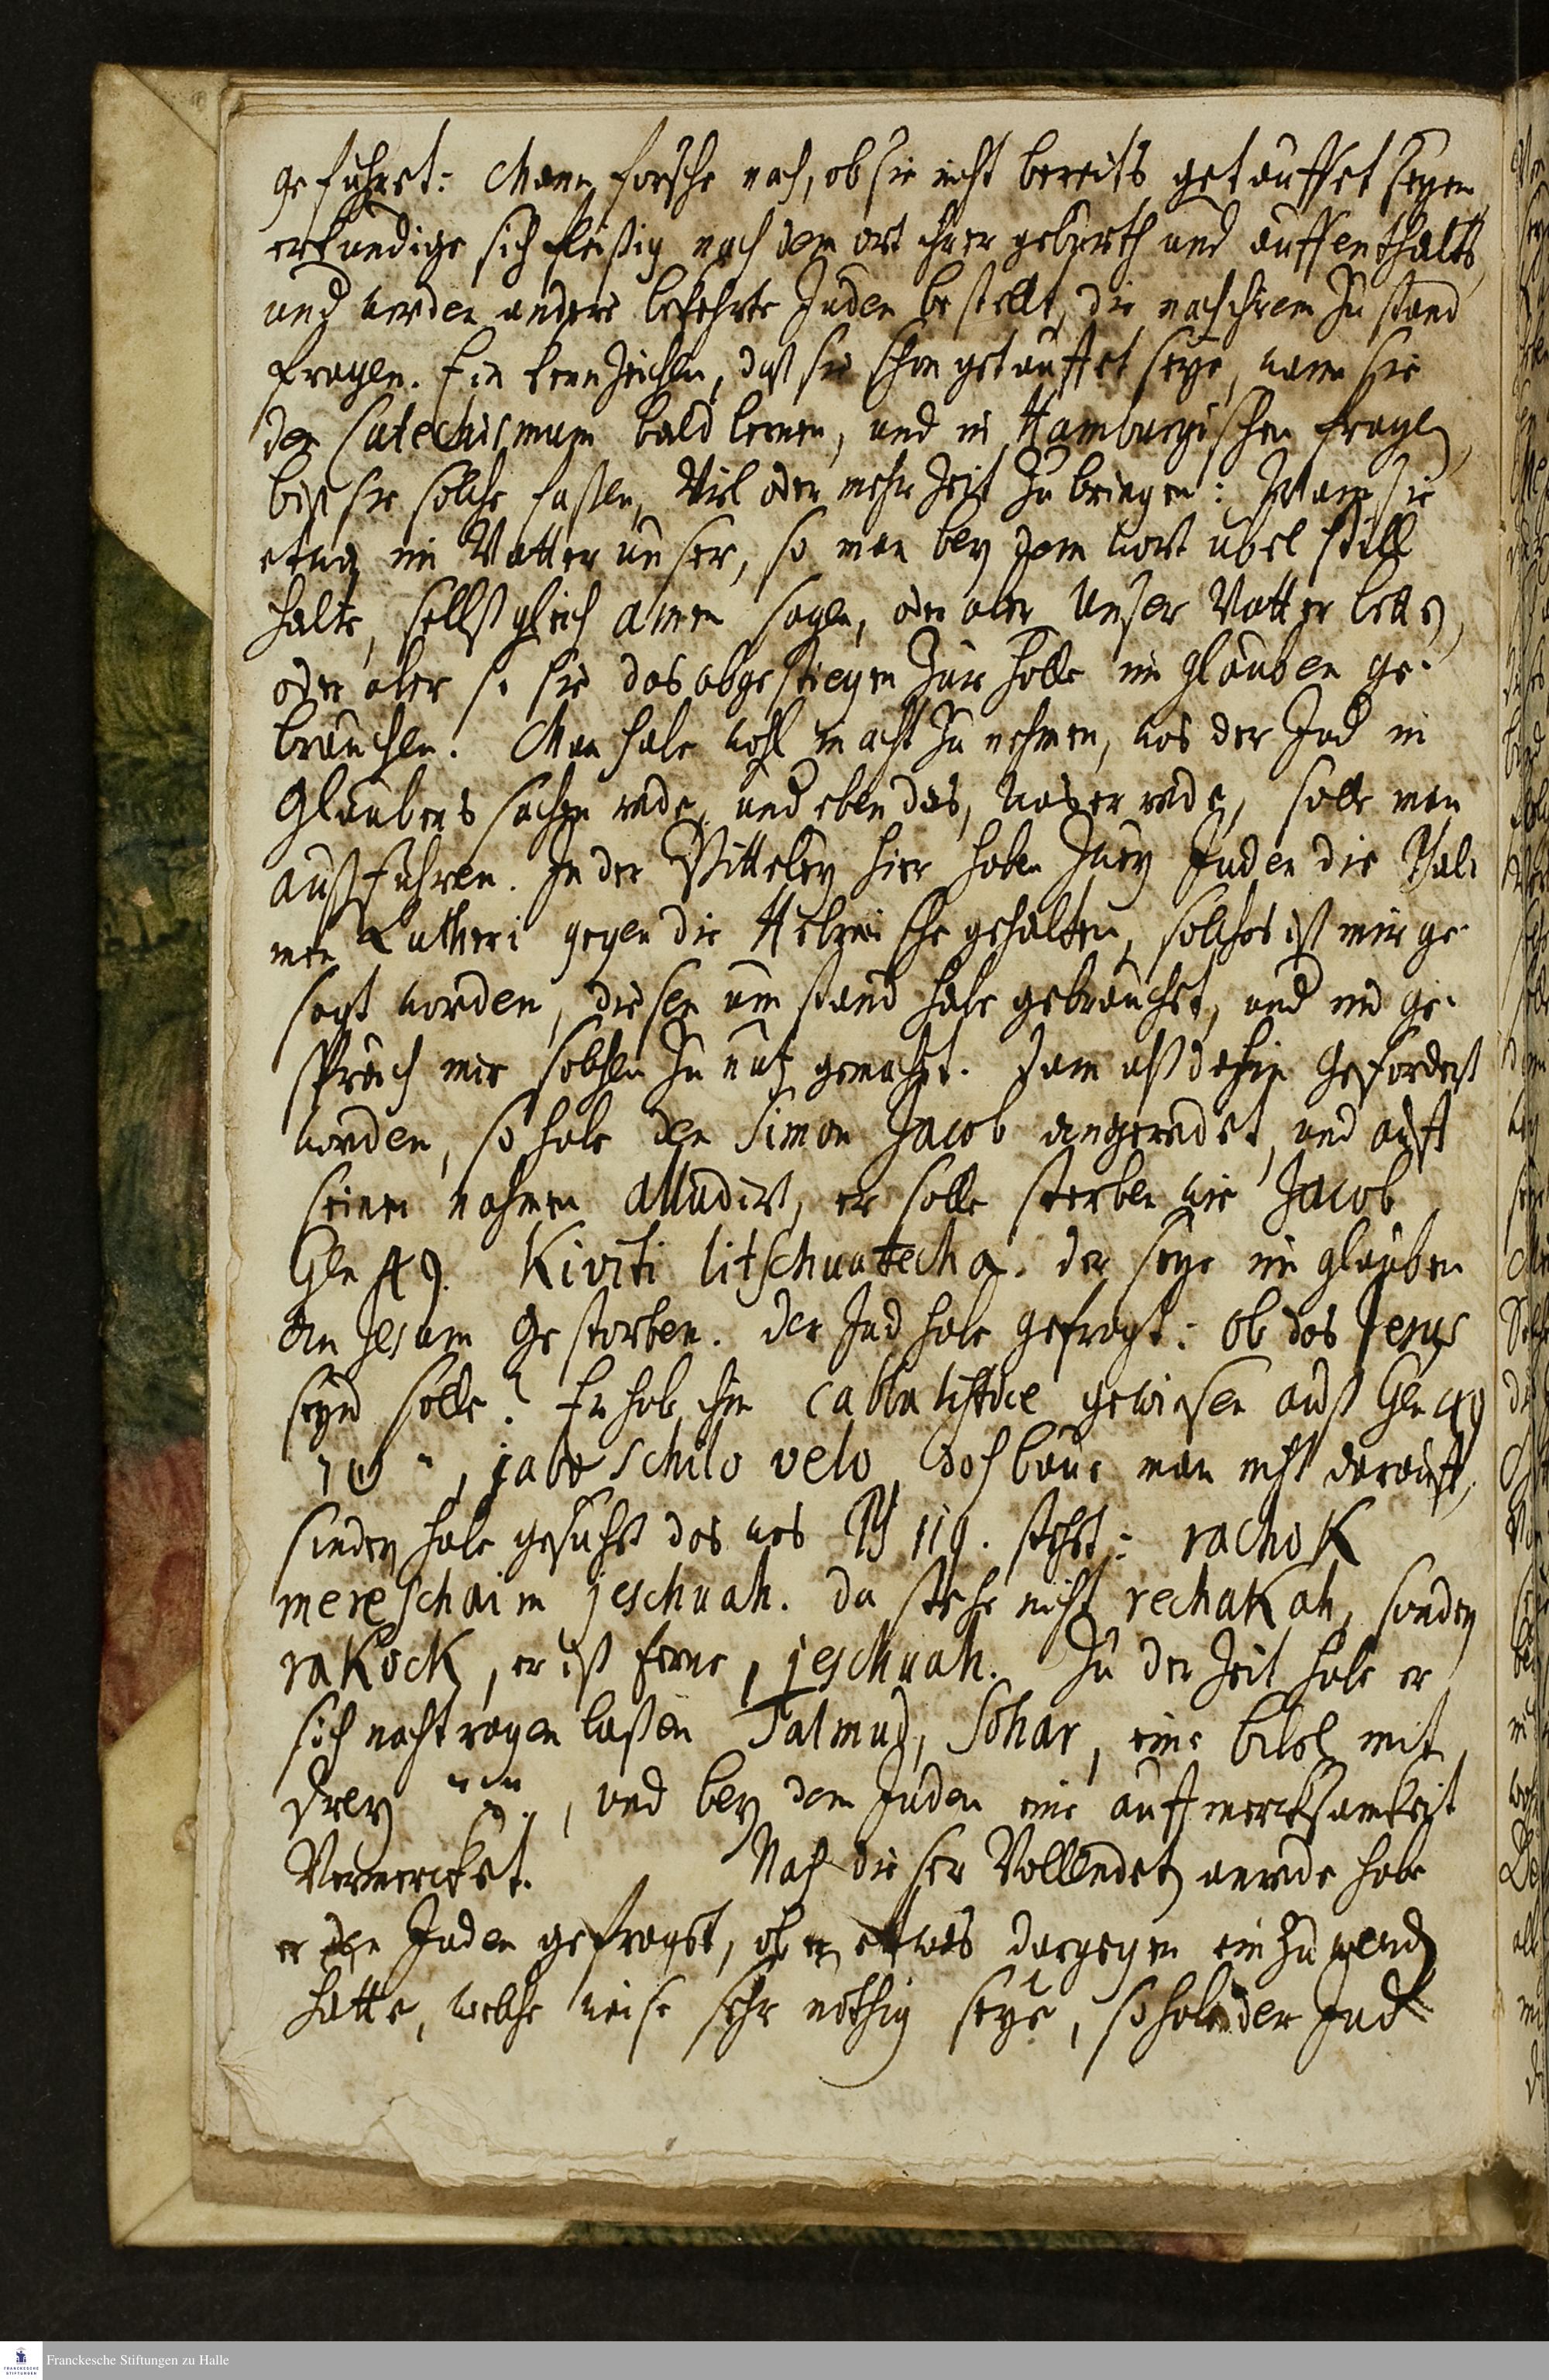 geführet: Mann forsche nach, ob sie nicht bereits getäuffet seyen,
erkundige sich fleißig nach dem ort ihrer geburth und auffenthalts,
und werden andere bekehrte Juden bestellt, die nach ihrem Zustand
fragen. Ein kennzeichen, daß sie schon getäuffet seye, wann sie
den Catechismum bald lernen, und in Hamburgischen fragen,
biß sie solche faßen, Viel oder mehr Zeit Zubringen: Wann sie
etwa im Vatter unser, so man bey dem wort übel still
halte, selbst gleich amen sagen, oder aber Unser Vatter bette,
oder aber so sie das abgestiegen Zur hölle im glauben ge-
brauchen. Man habe wohl in acht Zu nehmen, was der Jud in
Glaubens sachen rede, und eben das, was er rede, solle man
außführen. In der Vitteley hier haben Zwey Juden die
Lutheri gegen die gehalten, solches ist mir ge-
sagt worden, diesen umstand habe gebrauchet, und im ge-
spräch mir solchen Zu nutz gemacht. Dann alß dahin gefordert
worden, so habe den Simon Jacob angeredet, und auff
seinen nahmen alludirt, er solle sterben wie Jacob
Gen 49. Kiviti litschuatecha. der seye im glauben
an Jesum gestorben. Der Jud habe gefragt: ob das Jesus
seyn solle? Er hab ihm cabbalistice gewiesen auß Gen 49
10, jabo schilo velo, doch baue man nicht darauff,
sondern habe gesucht das was Ps 119. stehet: rachok
mereschaim jeschuah. da stehe nicht rechakah, sondern
rakock, er ist ferne, jeschuah. Zu der Zeit habe er
sich nachtragen laßen Talmud, Sohar, eine bibel mit
drey , und bey dem Juden eine auffmercksamkeit
Vermercket. Nach dieser Vollendeten anrede habe
er den Juden gefraget, ob er etwas dargegen einzuwenden
hatte, welche weise sehr nöthig seye, so habe der Jud
Franckesche Stiftungen zu Halle